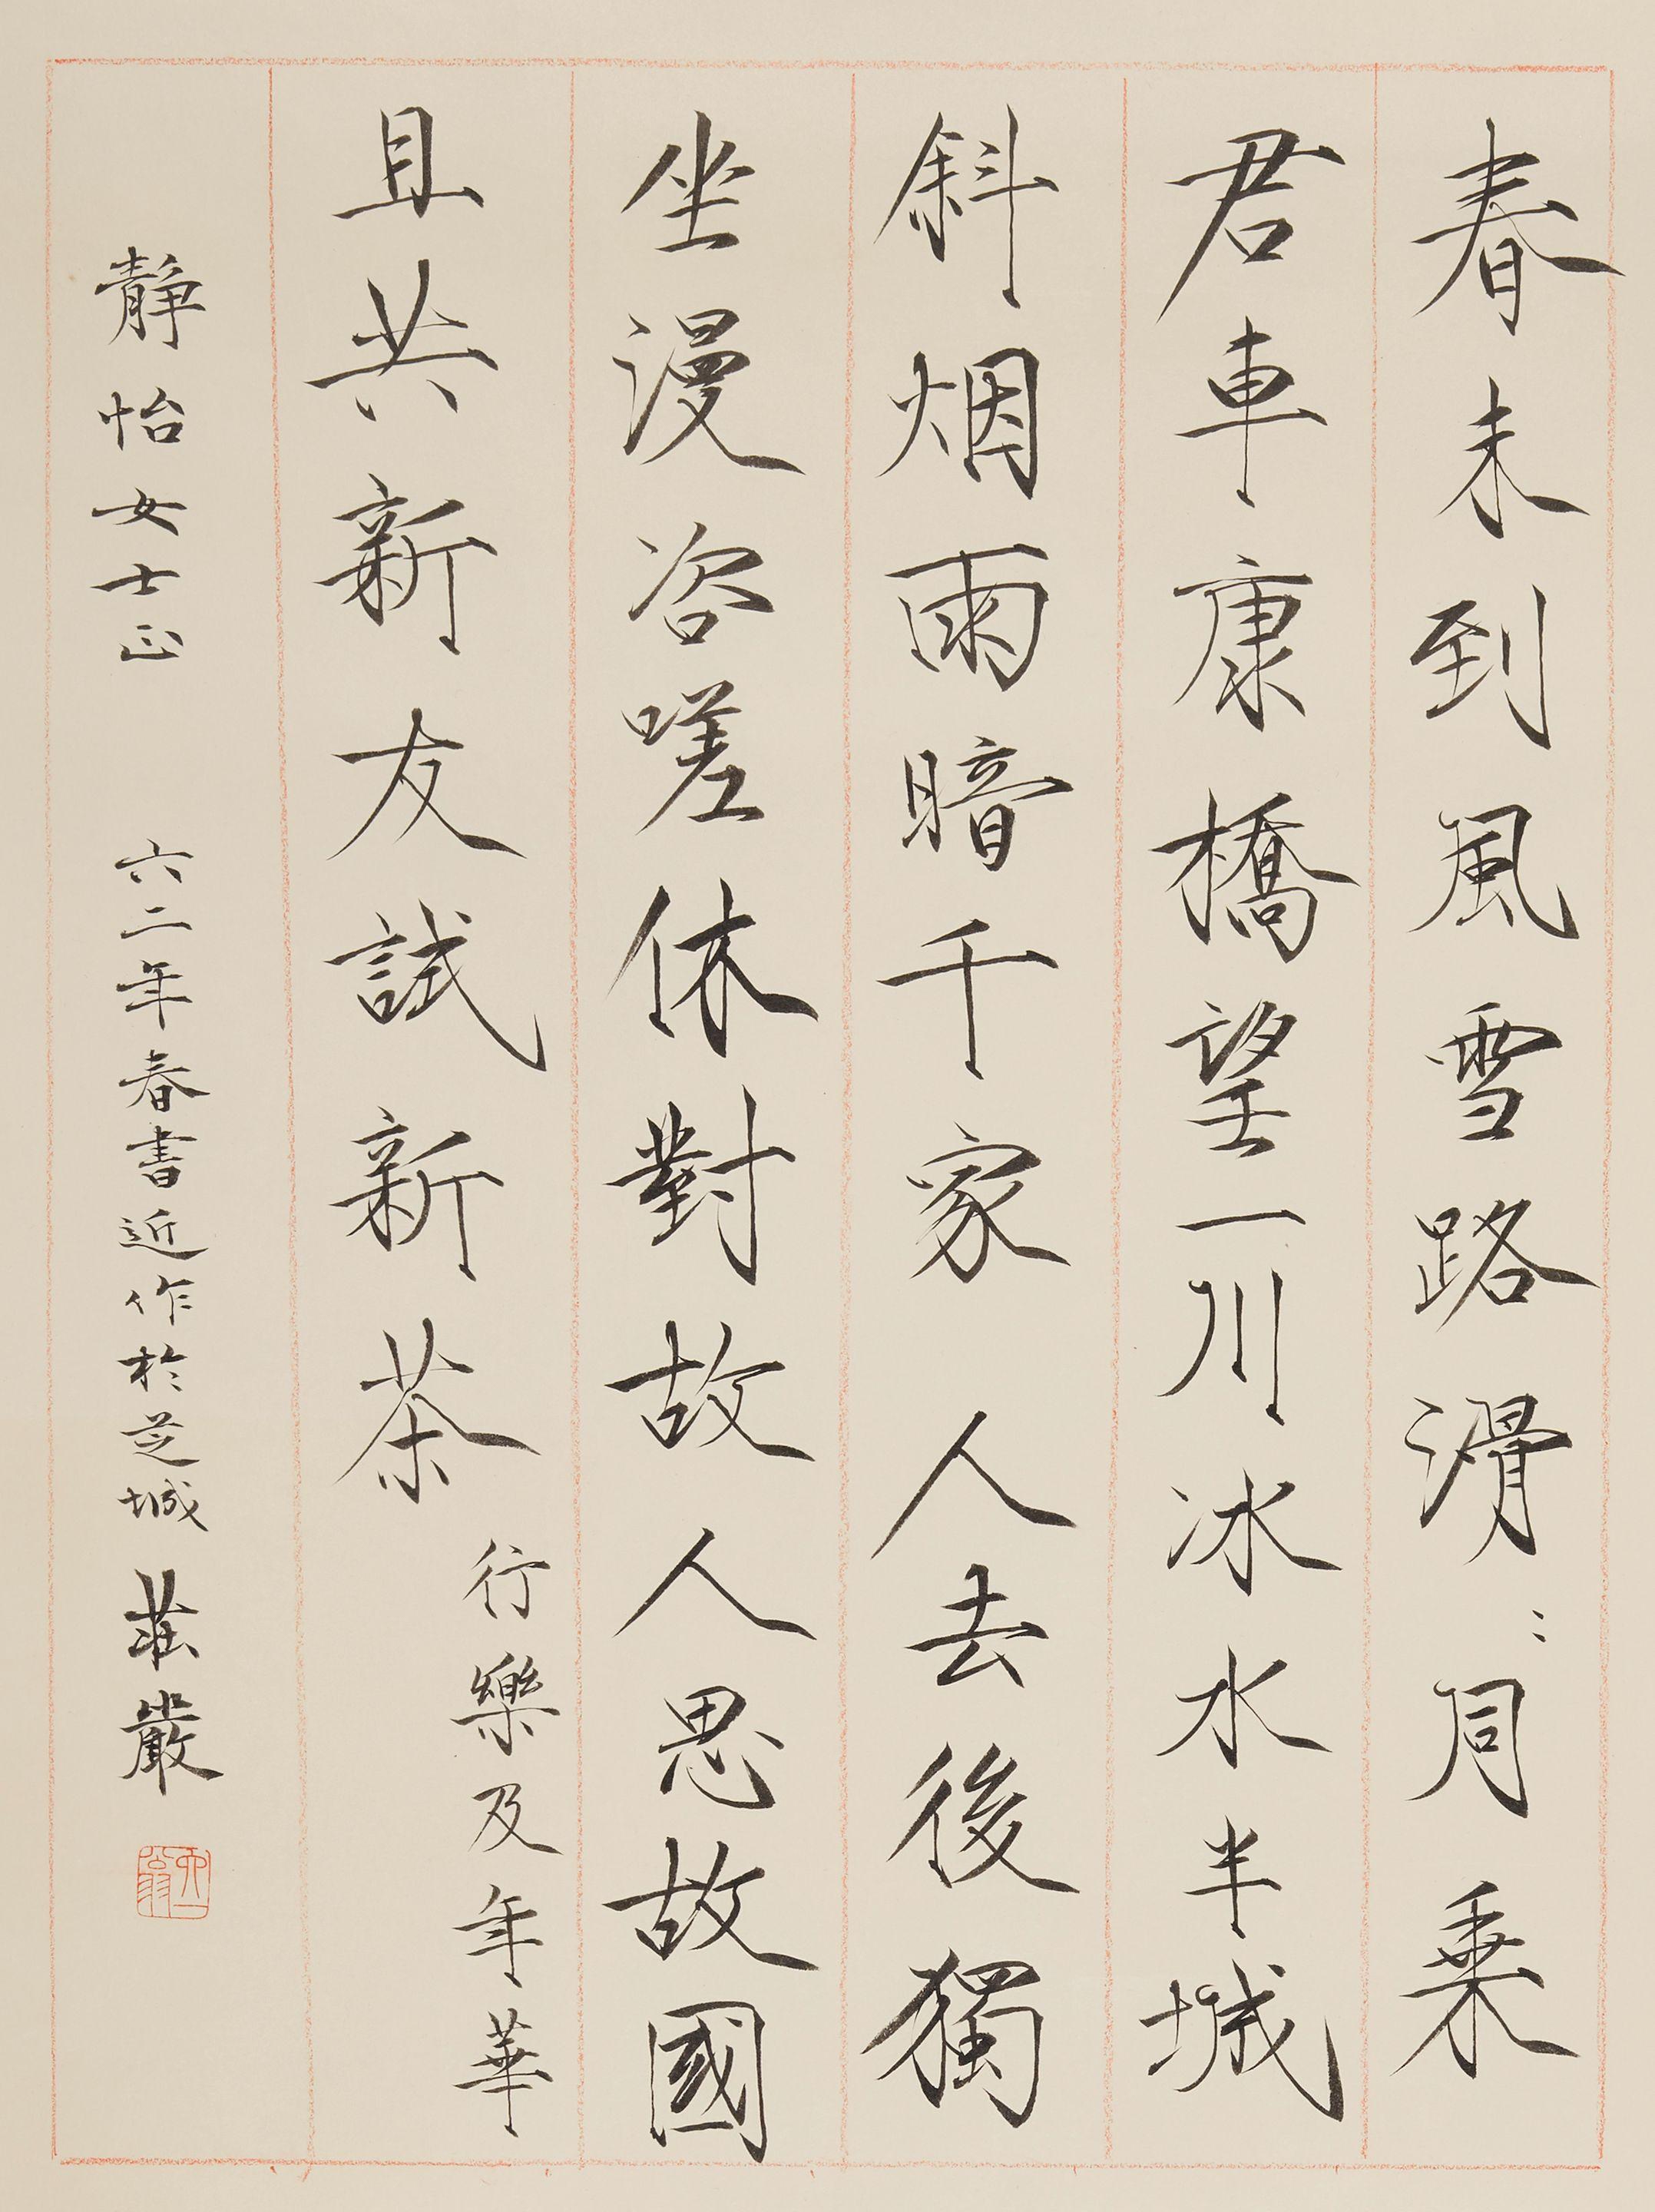 春未到風雪路滑⺀同乗
君車康橋望一川冰水半城
斜烟雨暗千家人去後獨
坐漫咨嗟休對故人思故國
且共新友試新茶
行樂及年華
靜怡女士正 六二年春書近作於芝城 莊嚴
六一翁